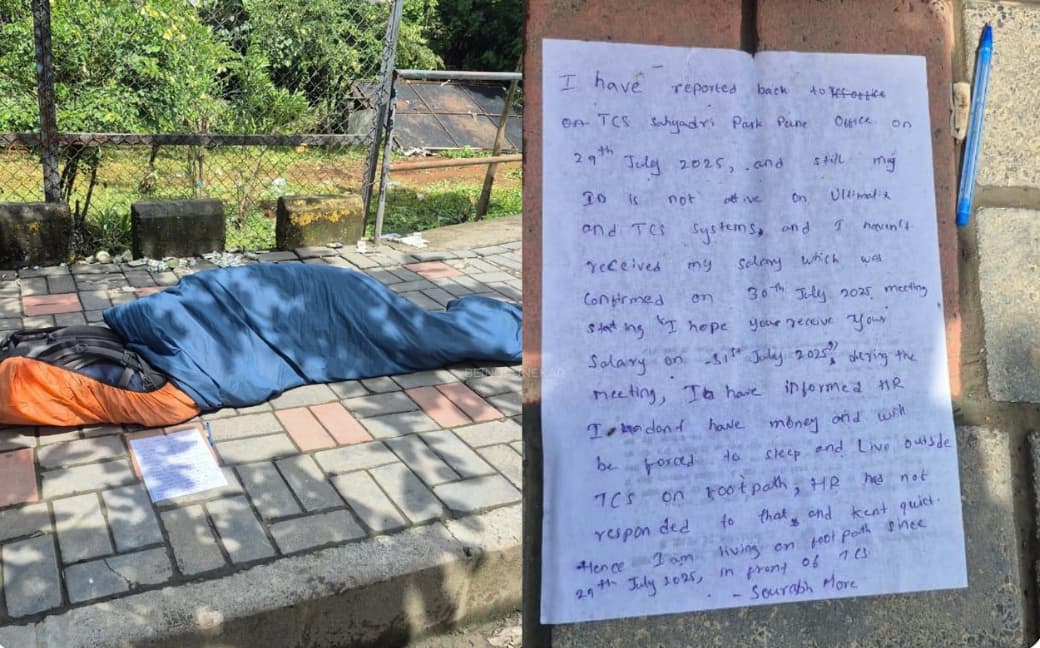 I have reported back to TCS office
on TCS Sahyadri Park Pune Office on
29th July 2025, and still my
ID is not ative on Ultimatix
and TCS systems, and I haven't
received my salary which was
confirmed on 30th July 2025 meeting
stating "I hope your receive your
Salary on 31st July 2025", dering the
meeting, I have informed HR
I dond have money and will
be forced to sleep and Live outside
TCS on footpath, HR has not
responded to that, and kent quiet.
Hence I am living on footpath since
29th July 2025, in front of TCS
- Sourabh More